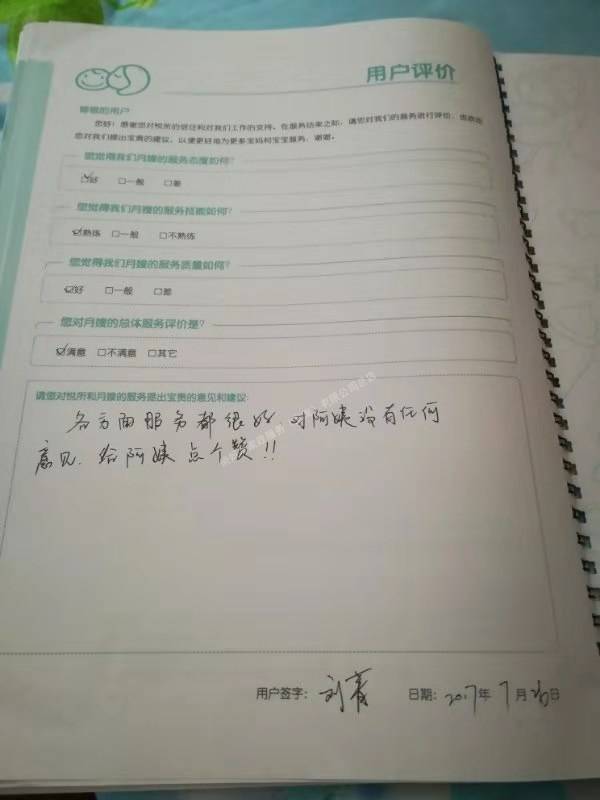 用户评价
尊敬的用户
您好!感谢您对悦所的信任和对我们工作的支持。在服务结束之际,请您对我们的服务进行评价,也欢迎
您对我们提出宝贵的建议,以便更好地为更多宝妈和宝宝服务,谢谢。
您觉得我们月嫂的服务态度如何?
☑好 □一般 □差
您觉得我们月嫂的服务技能如何?
☑熟练 □一般 □不熟练
您觉得我们月嫂的服务质量如何?
☑好 □一般 □差
您对月嫂的总体服务评价是?
☑满意 □不满意 □其它
请您对悦所和月嫂的服务提出宝贵的意见和建议:
各方面服务都很好,对阿姨没有任何
意见.给阿姨点个赞!!
用户签字: 刘 日期: 2017年7月 日